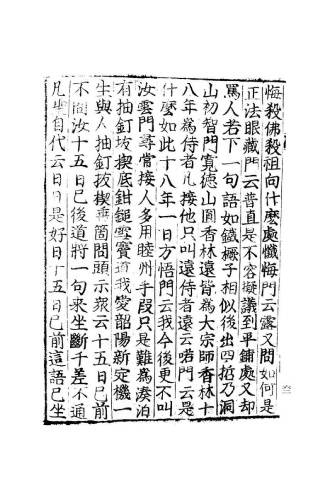 悔殺佛殺祖向什麽處懺悔門云露又問如何是
正法眼藏門云普直是不容擬議到平鋪處又却
罵人若下一句語如鐵橛子相似後出四哲乃洞
山初智門寬德山圓香林遠皆爲大宗師香林十
八年爲侍者凡接他只叫遠侍者遠云喏門云是
什麽如此十八年一日方悟門云我今後更不叫
汝雲門尋常接人多用睦州手段只是難爲湊泊
有抽釘拔楔底鉗鎚雪竇道我愛韶陽新定機一
生與人抽釘拔楔垂箇問頭示衆云十五日已前
不問汝十五日已後道將一句來坐斷千差不通
凡聖自代云日日是好日十五日已前這語已坐